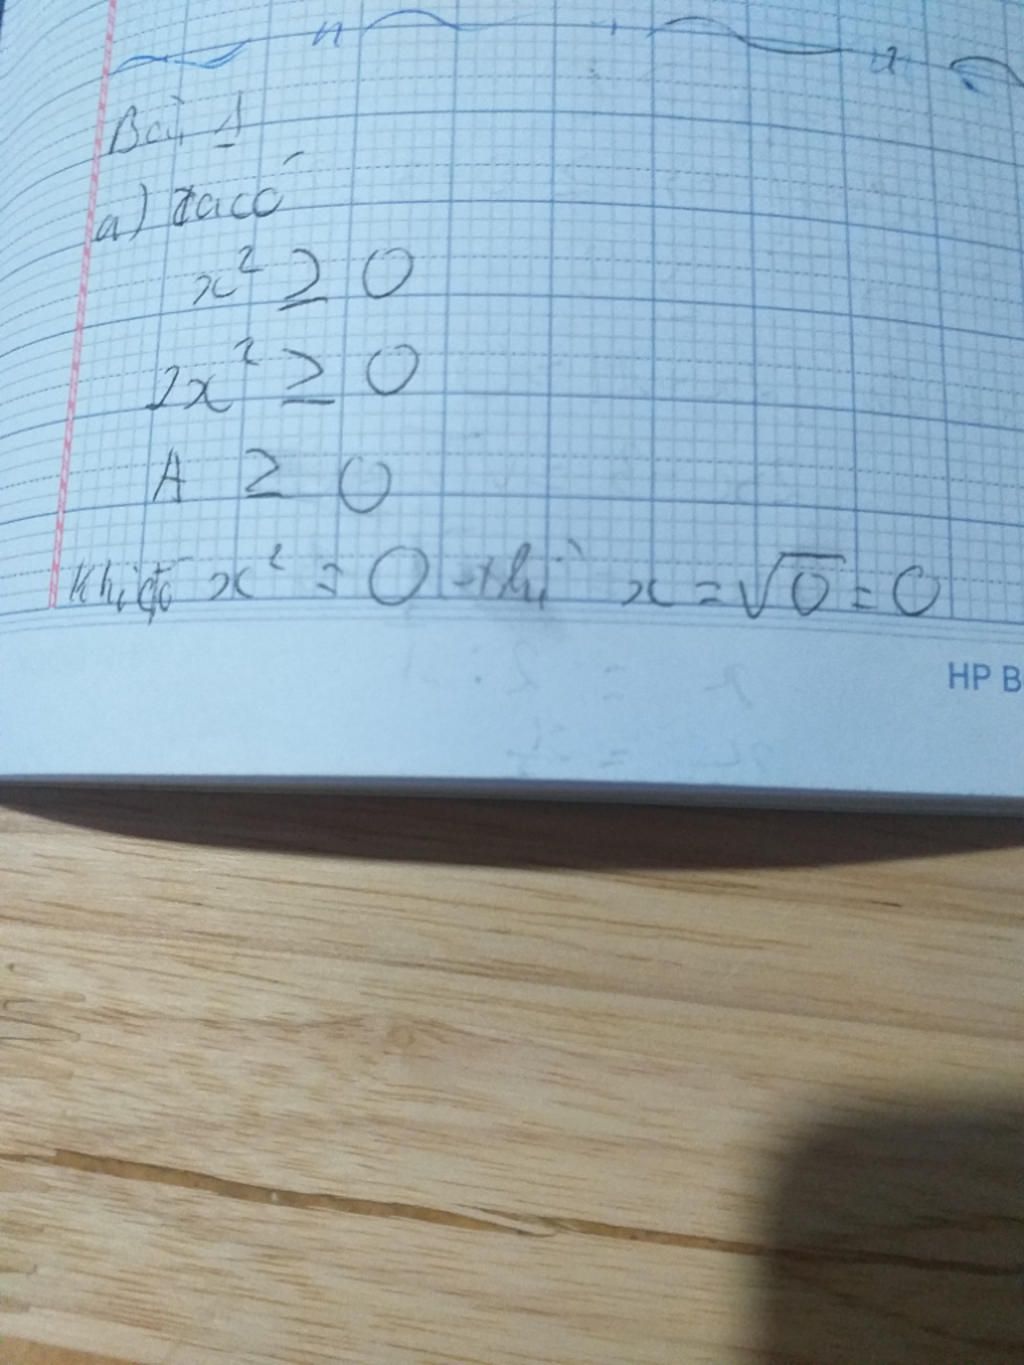 Bài 1
a) Ta có
x² ≥ 0
2x² ≥ 0
A ≥ 0
Khi đó x² = 0 thì x = √0 = 0
HP B